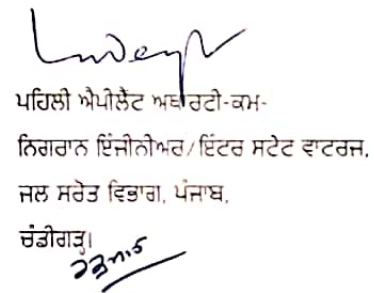 ਪਹਿਲੀ ਐਪੀਲੈਂਟ ਅਥਾਰਟੀ-ਕਮ-
ਨਿਗਰਾਨ ਇੰਜੀਨੀਅਰ/ਇੰਟਰ ਸਟੇਟ ਵਾਟਰਜ,
ਜਲ ਸਰੋਤ ਵਿਭਾਗ, ਪੰਜਾਬ,
ਚੰਡੀਗੜ੍ਹ।